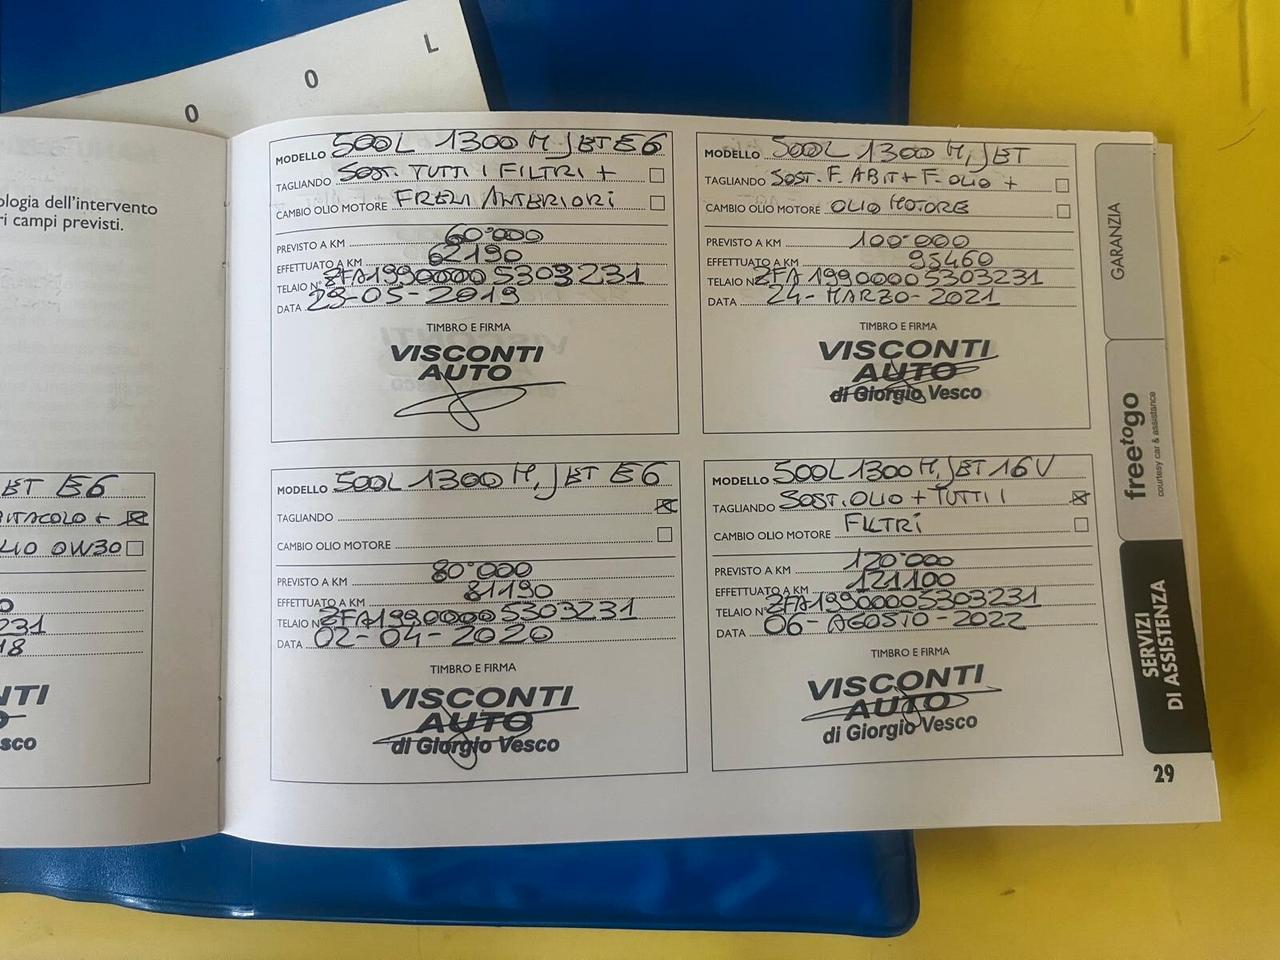 O
O
L
ologia dell'intervento
ri campi previsti.
ET E6
BITACOLO +
LIO 0W30
0
231
18
NTI
sco
MODELLO 500L 1300 M JET E6
TAGLIANDO SOST. TUTTI I FILTRI +
CAMBIO OLIO MOTORE FRENI ANTERIORI
PREVISTO A KM 60'000
EFFETTUATO A KM 62190
TELAIO N° ZFA19900005303231
DATA 29-05-2019
TIMBRO E FIRMA
VISCONTI
AUTO
MODELLO 500L 1300 M, JET
TAGLIANDO SOST. F. ABIT + F. OLIO +
CAMBIO OLIO MOTORE OLIO MOTORE
PREVISTO A KM 100'000
EFFETTUATO A KM 95460
TELAIO N° ZFA19900005303231
DATA 24-MARZO-2021
TIMBRO E FIRMA
VISCONTI
AUTO
di Giorgio Vesco
MODELLO 500L 1300 M, JET E6
TAGLIANDO
CAMBIO OLIO MOTORE
PREVISTO A KM 80'000
EFFETTUATO A KM 81190
TELAIO N° ZFA19900005303231
DATA 02-04-2020
TIMBRO E FIRMA
VISCONTI
AUTO
di Giorgio Vesco
MODELLO 500L 1300 M, JET 16V
TAGLIANDO SOST. OLIO + TUTTI I
CAMBIO OLIO MOTORE FILTRI
PREVISTO A KM 120'000
EFFETTUATO A KM 121100
TELAIO N° ZFA19900005303231
DATA 06-AGOSTO-2022
TIMBRO E FIRMA
VISCONTI
AUTO
di Giorgio Vesco
GARANZIA
freetogo
courtesy car & assistance
SERVIZI
DI ASSISTENZA
29